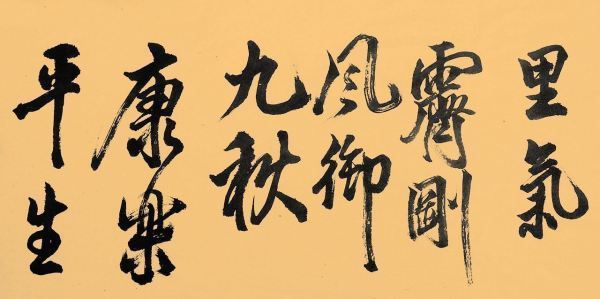 里氣
霽剛
風御
九秋
康樂
平生